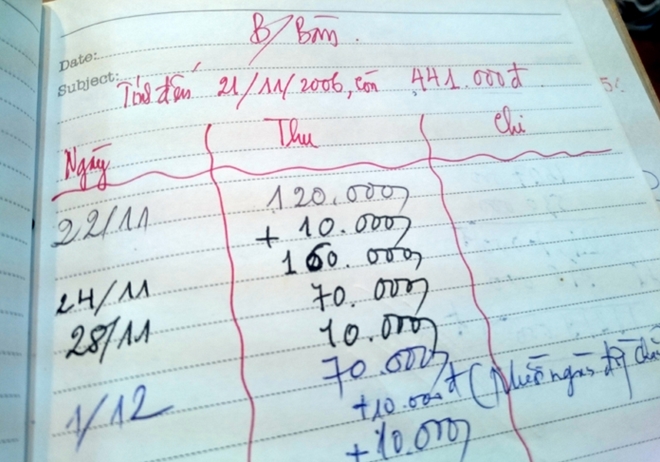 B/ Bốn.
Date:
Subject: Tính đến 21/11/2006, còn 441.000đ
Ngày Thu Chi
22/11 120.000
+ 10.000
160.000
24/11 70.000
28/11 10.000
1/12 70.000
+10.000đ (
+10.000